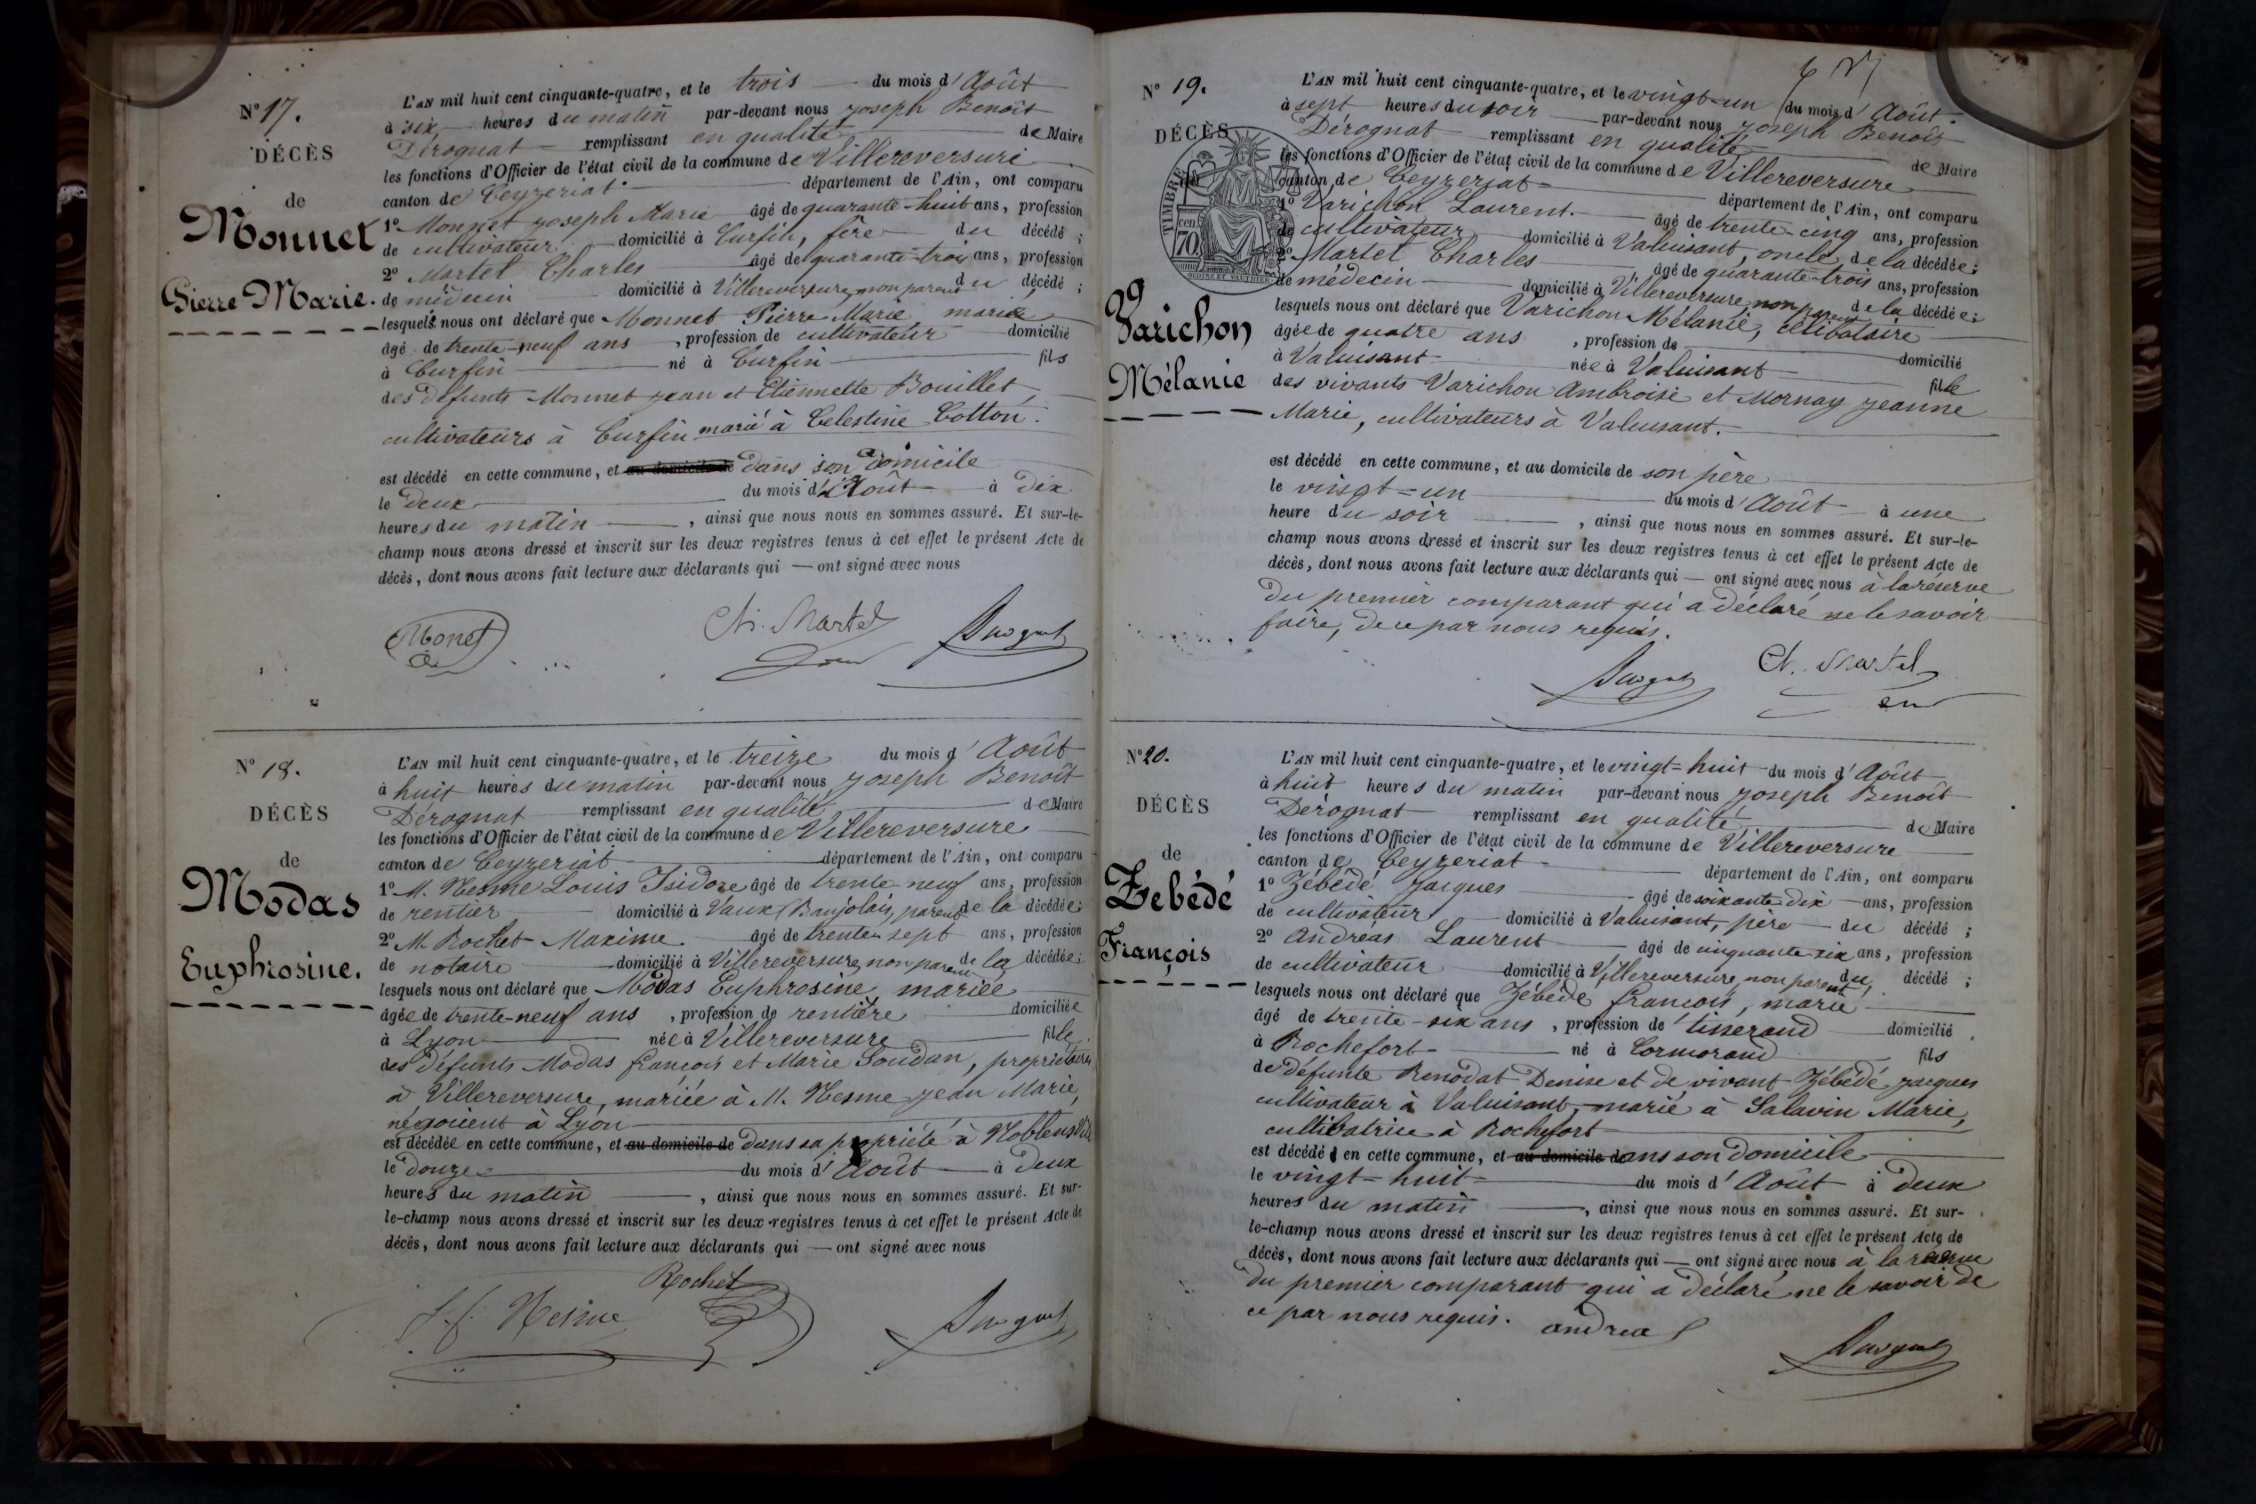 N° 17.
DÉCÈS
de
Monnet
Pierre Marie.
L'AN mil huit cent cinquante-quatre, et le trois du mois d'Août
à six heures du matin par-devant nous Joseph Benoit
Dérognat remplissant en qualité de Maire
les fonctions d'Officier de l'état civil de la commune de Villereversure
canton de Ceyzeriat département de l'Ain, ont comparu
1° Monnet Joseph Marie âgé de quarante-huit ans, profession
de cultivateur domicilié à Curfin, frère du décédé ;
2° Martel Charles âgé de quarante-trois ans, profession
de médecin domicilié à Villereversure, non parent du décédé ;
lesquels nous ont déclaré que Monnet Pierre Marie marié
âgé de trente-neuf ans, profession de cultivateur domicilié
à Curfin né à Curfin fils
des défunts Monnet Jean et Etiennette Bouillet,
cultivateurs à Curfin marié à Celestine Cotton.
est décédé en cette commune, et au domicile de dans son domicile
le deux du mois d'Août à dix
heures du matin, ainsi que nous nous en sommes assuré. Et sur-le-
champ nous avons dressé et inscrit sur les deux registres tenus à cet effet le présent Acte de
décès, dont nous avons fait lecture aux déclarants qui — ont signé avec nous
Monet Ch. Martel
N° 18.
DÉCÈS
de
Modas
Euphrosine.
L'AN mil huit cent cinquante-quatre, et le treize du mois d'Août
à huit heures du matin par-devant nous Joseph Benoît
Dérognat remplissant en qualité de Maire
les fonctions d'Officier de l'état civil de la commune de Villereversure
canton de Ceyzeriat département de l'Ain, ont comparu
1° M. Nesme Louis Isidore âgé de trente neuf ans, profession
de rentier domicilié à Vaux (Baujolais, parent de la décédée ;
2° M. Rochet Maxime âgé de trente-sept ans, profession
de notaire domicilié à Villereversure, non parent de la décédée ;
lesquels nous ont déclaré que Modas Euphrosine mariée
âgée de trente-neuf ans, profession de rentière domiciliée
à Lyon née à Villereversure fille
des défunts Modas françois et Marie Goudan, propriétaires
à Villereversure, mariée à M. Nesme Jean Marie,
négocient à Lyon
est décédée en cette commune, et au domicile de dans sa propriété à Noblens
le douze du mois d'Août à deux
heures du matin, ainsi que nous nous en sommes assuré. Et sur-
le-champ nous avons dressé et inscrit sur les deux registres tenus à cet effet le présent Acte de
décès, dont nous avons fait lecture aux déclarants qui — ont signé avec nous
Rochet
Nesme
N° 19.
DÉCÈS
TIMBRE
70
Varichon
Mélanie
L'AN mil huit cent cinquante-quatre, et le vingt-un du mois d'Août.
à sept heures du soir par-devant nous Joseph Benoît
Dérognat remplissant en qualité de Maire
les fonctions d'Officier de l'état civil de la commune de Villereversure
canton de Ceyzeriat département de l'Ain, ont comparu
1° Varichon Laurent âgé de trente-cinq ans, profession
de cultivateur domicilié à Valuisant, oncle de la décédée ;
2° Martel Charles âgé de quarante-trois ans, profession
de médecin domicilié à Villereversure, non parent de la décédée ;
lesquels nous ont déclaré que Varichon Mélanie, célibataire
âgée de quatre ans, profession de domicilié
à Valuisant née à Valuisant fille
des vivants Varichon Ambroise et Mornay Jeanne
Marie, cultivateurs à Valuisant.
est décédé en cette commune, et au domicile de son père
le vingt-un du mois d'Août à une
heure du soir, ainsi que nous nous en sommes assuré. Et sur-le-
champ nous avons dressé et inscrit sur les deux registres tenus à cet effet le présent Acte de
décès, dont nous avons fait lecture aux déclarants qui — ont signé avec nous à la réserve
du premier comparant qui a déclaré ne le savoir
faire, de ce par nous requis.
Ch. Martel
N° 20.
DÉCÈS
de
Zebédé
François
L'AN mil huit cent cinquante-quatre, et le vingt-huit du mois d'Août
à huit heures du matin par-devant nous Joseph Benoît
Dérognat remplissant en qualité de Maire
les fonctions d'Officier de l'état civil de la commune de Villereversure
canton de Ceyzeriat département de l'Ain, ont comparu
1° Zébédé Jacques âgé de soixante dix ans, profession
de cultivateur domicilié à Valuisant, père du décédé ;
2° Andréas Laurent âgé de cinquante six ans, profession
de cultivateur domicilié à Villereversure, non parent du décédé ;
lesquels nous ont déclaré que Zébédé françois, marié
âgé de trente-six ans, profession de tisserand domicilié
à Rochefort né à Cormorand fils
de défunte Renodat Denise et de vivant Zébédé Jacques
cultivateur à Valuisant, marié à Salavin Marie,
cultivatrice à Rochefort
est décédé en cette commune, et au domicile dans son domicile
le vingt-huit du mois d'Août à deux
heures du matin, ainsi que nous nous en sommes assuré. Et sur-
le-champ nous avons dressé et inscrit sur les deux registres tenus à cet effet le présent Acte de
décès, dont nous avons fait lecture aux déclarants qui — ont signé avec nous à la réserve
du premier comparant qui a déclaré ne le savoir de
ce par nous requis.
andreas